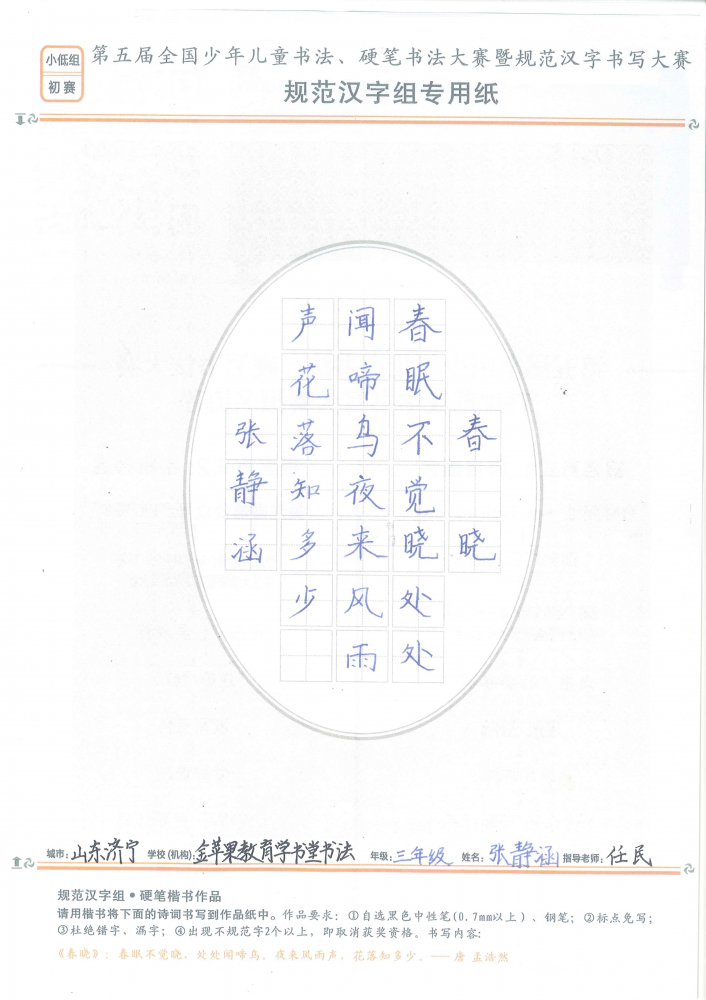 小低组
初赛
第五届全国少年儿童书法、硬笔书法大赛暨规范汉字书写大赛
规范汉字组专用纸
春晓
春眠不觉晓处处
闻啼鸟夜来风雨
声花落知多少
张静涵
城市：山东济宁 学校(机构)：金苹果教育学书堂书法 年级：三年级 姓名：张静涵 指导老师：任民
规范汉字组•硬笔楷书作品
请用楷书将下面的诗词书写到作品纸中。作品要求：①自选黑色中性笔(0.7mm以上)、钢笔；②标点免写；
③杜绝错字、漏字；④出现不规范字2个以上，即取消获奖资格。书写内容：
《春晓》：春眠不觉晓，处处闻啼鸟。夜来风雨声，花落知多少。——唐 孟浩然